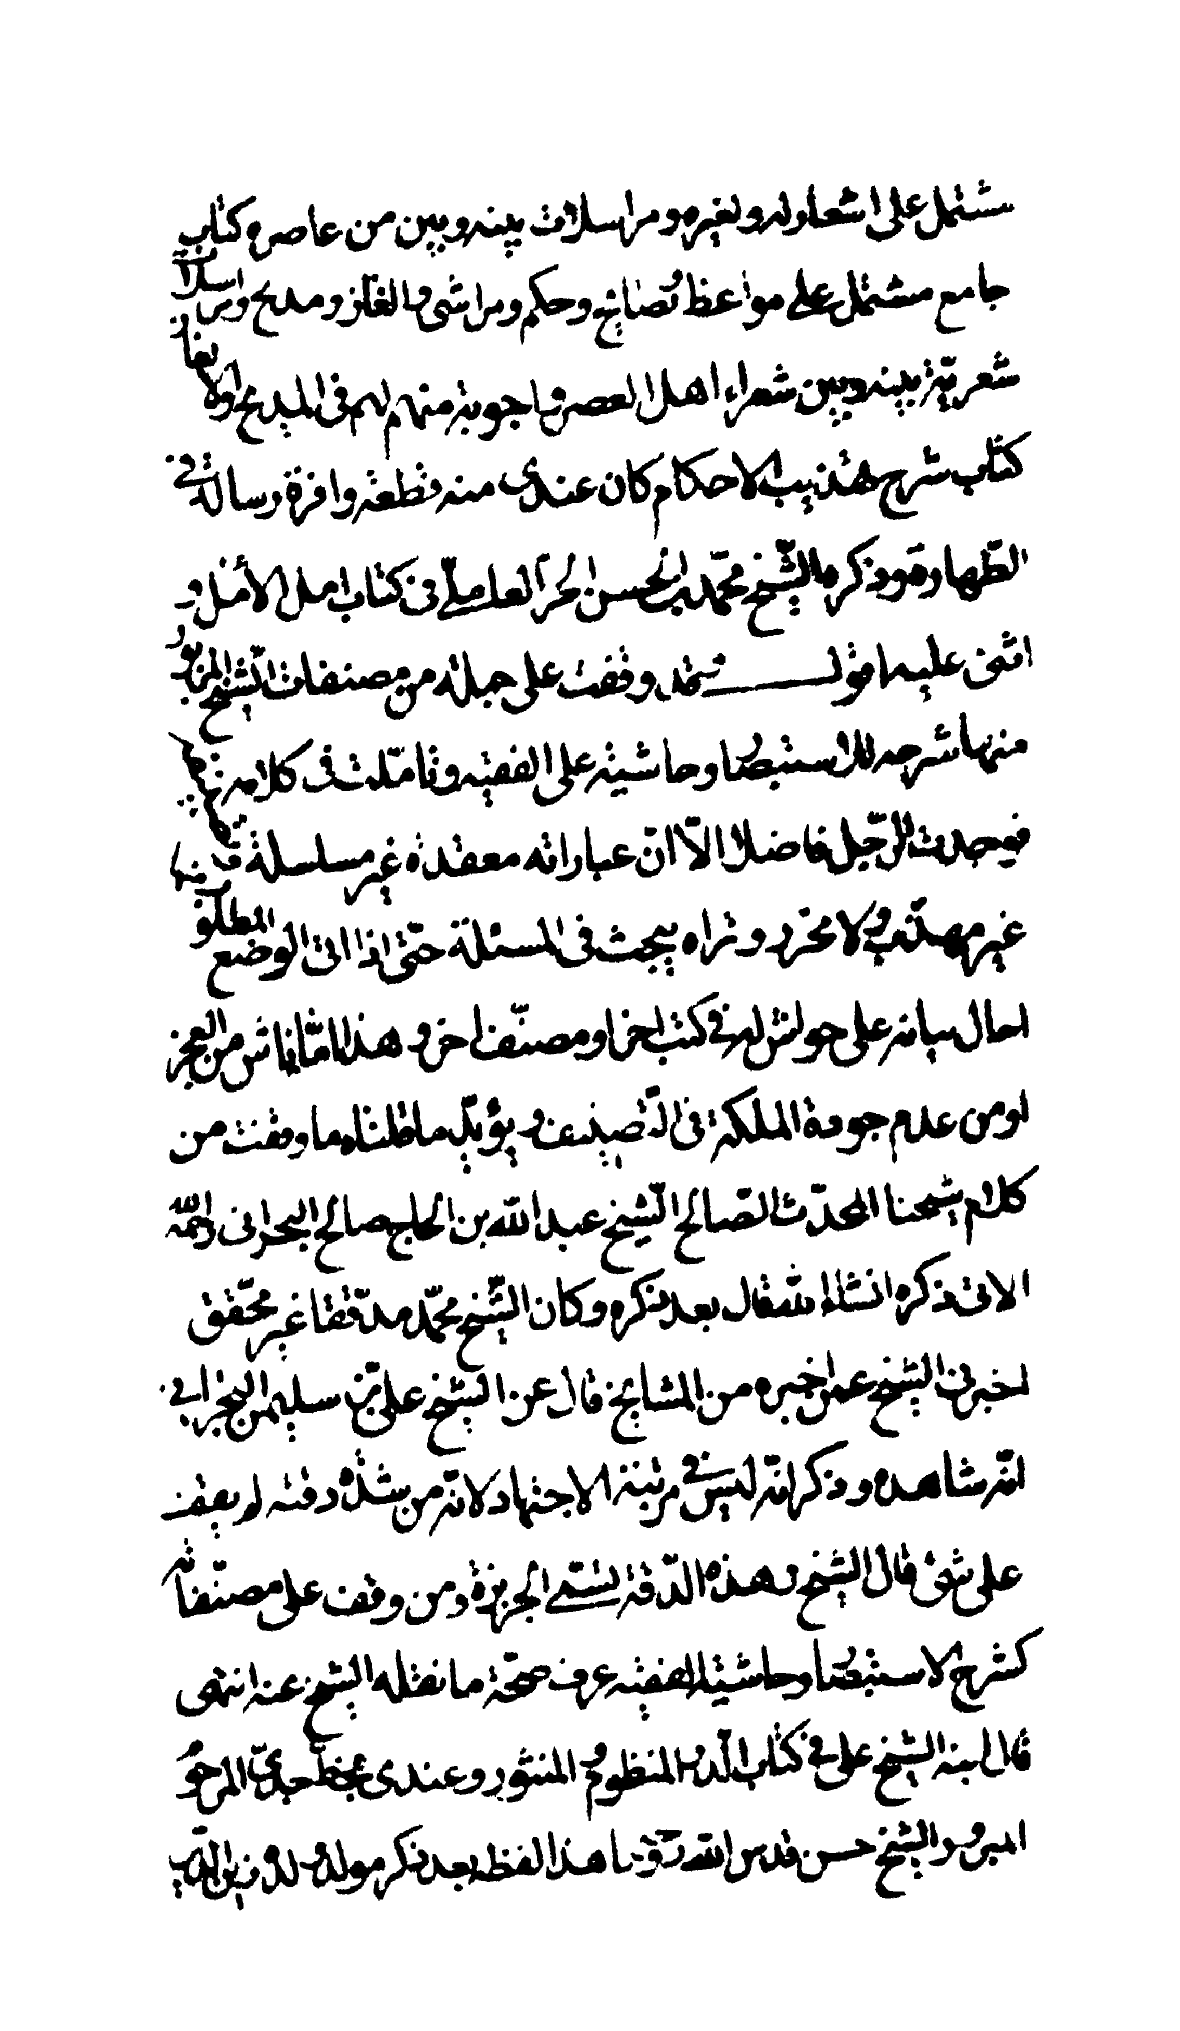 مشتمل على اشعار له ولغيره ومراسلات بينه وبين من عاصره كتاب
جامع مشتمل على مواعظ نصايح وحكم ومراثى والغاز ومديح ومراسلات
شعرية بينه وبين شعراء اهل العصر واجوبة منهم لهم فى المديح والالغاز
كتاب شرح تهذيب الاحكام كان عندى منه قطعة وافرة رسالة فى
الطهارة وقد ذكره الشيخ محمد بن الحسن الحر العاملى فى كتاب امل الأمل و
اثنى عليه اقول قد وقفت على جملة من مصنفات الشيخ المزبور
منها شرحه للاستبصار وحاشيته على الفقيه وتاملت فى كلامه
فوجدت الرجل فاضلا الا ان عباراته معقدة غير مسلسلة
غير مهذب ولا محرر وتراه يبحث فى المسئلة حتى اذا اتى الوضع المطلوب
احال بيانه على حواش له فى كتب اخر او مصنف اخر وهذا اما ناش من العجز
او من عدم جودة الملكة فى التصنيف ويؤيد ما قلناه ما وقفت من
كلام شيخنا المحدث الصالح الشيخ عبد الله بن الحاج صالح البحرانى رحمه الله
الاتى ذكره انشاء الله قال بعد ذكره وكان الشيخ محمد مدققا غير محقق
اخبرنى الشيخ عمن اخبره من المشايخ قال عن الشيخ على بن سليمن البحرانى
انه شاهده وذكر انه ليس فى مرتبة الاجتهاد لانه من شدة دقته لم يقف
على شئ قال الشيخ وهذه الدقة تسمى الجربزة ومن وقف على مصنفاته
كشرح الاستبصار وحاشية الفقيه عرف صحة ما نقله الشيخ عنه انتهى
قال ابنه الشيخ على فى كتاب الدر المنظوم والمنثور وعندى بخط جدى المرحوم
المبرور الشيخ حسن قدس الله روحه ما هذا لفظه بعد ذكر مولد ولده زين الدين